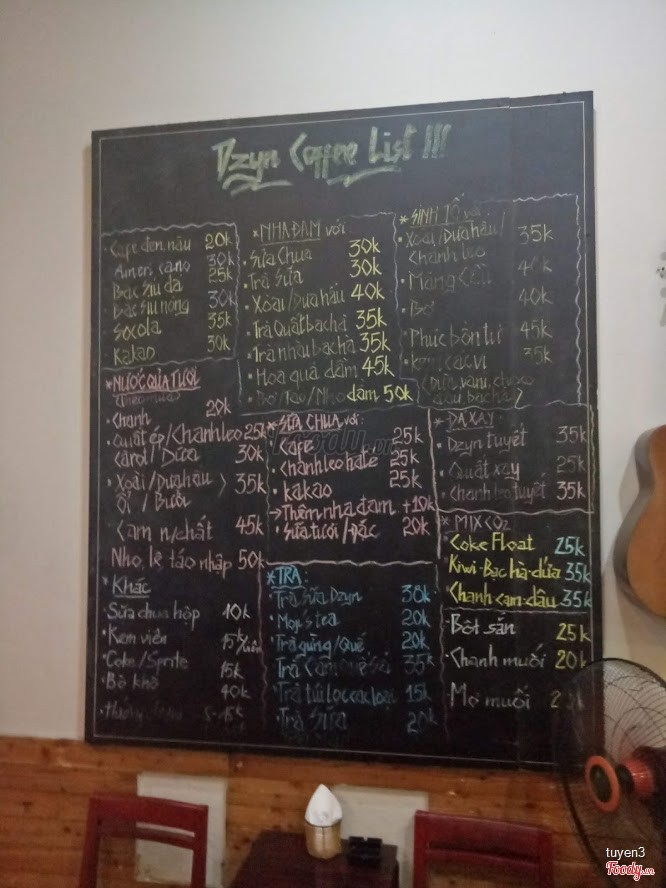 Dzyn Coffee List !!!
· Cafe đen, nâu 20k
Americano 30k
· Bạc sỉu đá 25k
· Bạc sỉu nóng 30k
· Socola 35k
· Kakao 30k
* NHA ĐAM với
· Sữa Chua 30k
· Trà Sữa 30k
· Xoài/Dưa hấu 40k
· Trà Quất bạc hà 35k
· Trà nhài bạc hà 35k
· Hoa quả dầm 45k
· Bơ/Táo/Nho dầm 50k
* SINH TỐ với:
· Xoài/Dưa hấu/ 35k
chanh leo
· Mãng cầu 40k
· Bơ 40k
· Phúc bồn tử 45k
· kem các vị 35k
* NƯỚC QUẢ TƯƠI
(Theo mùa)
· Chanh 20k
· Quất ép/Chanh leo 25k
Carot/Dứa 30k
· Xoài/Dưa hấu > 35k
Ổi/Bưởi
· Cam n/chất 45k
Nho, lê táo nhập 50k
* SỮA CHUA với:
· Cafe 25k
· chanh leo hạt é 25k
· kakao 25k
→ Thêm nha đam +10k
· Sữa tươi/Đặc 20k
* ĐÁ XAY:
· Dzyn tuyết 35k
· Quất xay 25k
· Chanh leo tuyết 35k
* MIX CO2
· Coke Float 25k
· Kiwi-Bạc hà-dứa 35k
· Chanh-cam-dâu 35k
· Bột sắn 25k
· Chanh muối 20k
· Mơ muối
* Khác
· Sữa chua hộp 10k
· Kem viên 15k/viên
· Coke/Sprite 15k
· Bò khô 40k
* TRÀ:
· Trà Sữa Dzyn 30k
· Mojs tea 20k
· Trà gừng/Quế 20k
· Trà Cam quế sả 35k
· Trà túi lọc các loại 15k
· Trà Sữa 20k
Foody.vn
tuyen3
Foody.vn